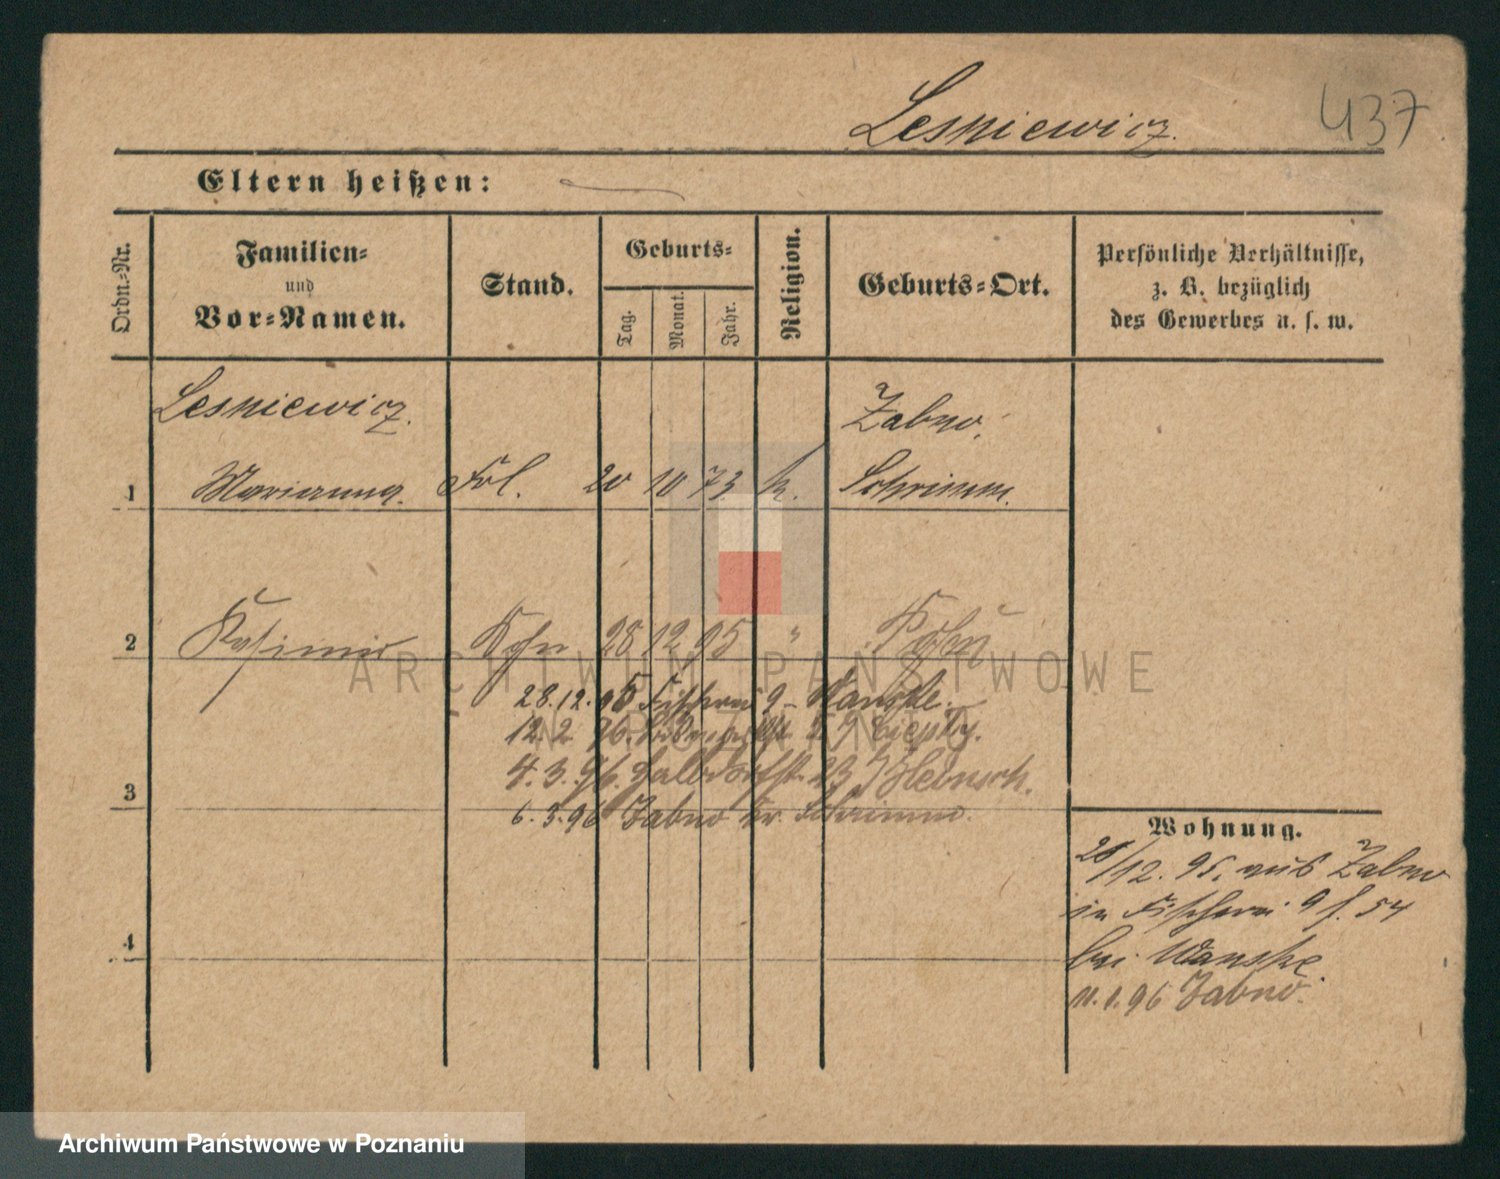 Lesniewicz.
437
Eltern heißen:
Ordn.-Nr.
Familien-
und
Vor-Namen.
Stand.
Geburts-
Tag.
Monat.
Jahr.
Religion.
Geburts-Ort.
Persönliche Verhältnisse,
z. B. bezüglich
des Gewerbes u. s. w.
Lesniewicz. Żabno,
1 Marianna. Frl. 20 10 73 k. Schrimm.
2 Kasimir 28 12 95 "
ARCHIWUM PAŃSTWOWE
W POZNANIU
28.12.95 Fischerei 9 Wanske.
12.2.96.
3
4.3.96. Halbdorfstr. 23
6.3.96 Zabno Kr. Schrimm.
4
Wohnung.
28/12. 95. aus Żabno
in Fischerei 9 f. 54
bei Wanske.
11.1.96 Zabno.
Archiwum Państwowe w Poznaniu